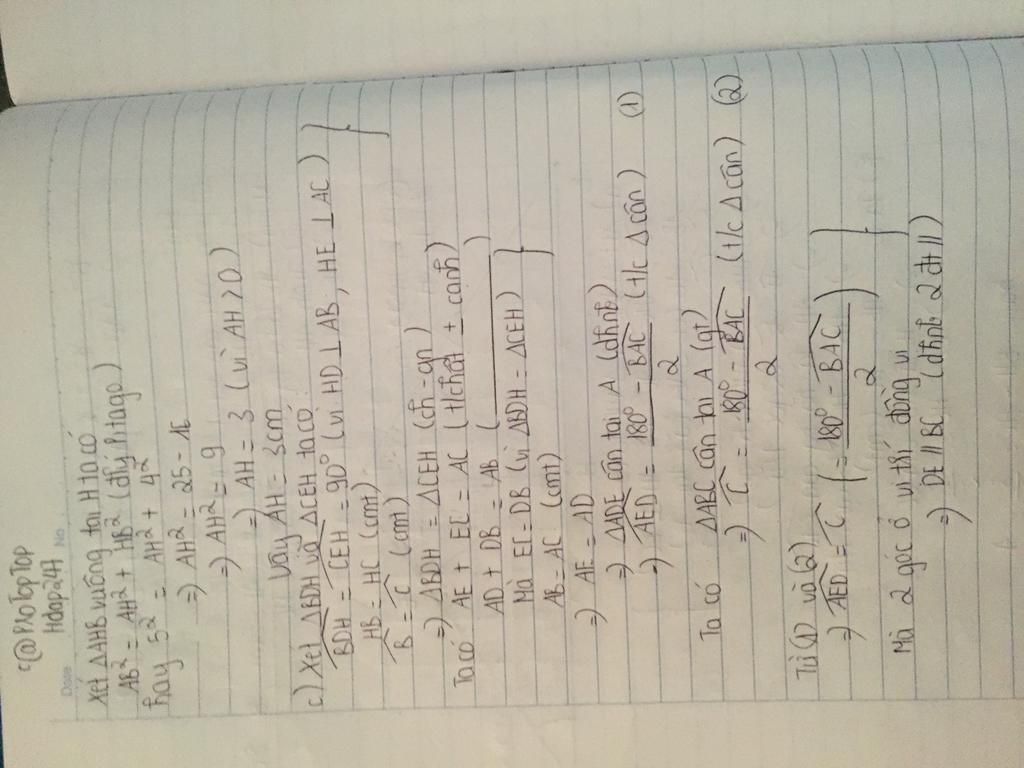 ©@ProTopTop
Hdap247
Date No
Xét ΔAHB vuông tại H ta có
AB² = AH² + HB² (đlý Pitago)
hay 5² = AH² + 4²
=> AH² = 25 - 16
=> AH² = 9
=> AH = 3 (vì AH > 0)
Vậy AH = 3cm
c) Xét ΔBDH và ΔCEH ta có:
BDH = CEH = 90° (vì HD ⊥ AB, HE ⊥ AC)
HB = HC (cmt)
B = C (cmt)
=> ΔBDH = ΔCEH (ch-gn)
Ta có AE + EC = AC (t/chất + cạnh)
AD + DB = AB ( )
Mà EC = DB (vì ΔBDH = ΔCEH)
AB = AC (cmt)
=> AE = AD
=> ΔADE cân tại A (đhnb)
=> AED = 180° - BAC / 2 (t/c Δ cân) (1)
Ta có ΔABC cân tại A (gt)
=> C = 180° - BAC / 2 (t/c Δ cân) (2)
Từ (1) và (2)
=> AED = C (= 180° - BAC / 2)
Mà 2 góc ở vị thí đồng vị
=> DE // BC (đhnb 2 đt //)